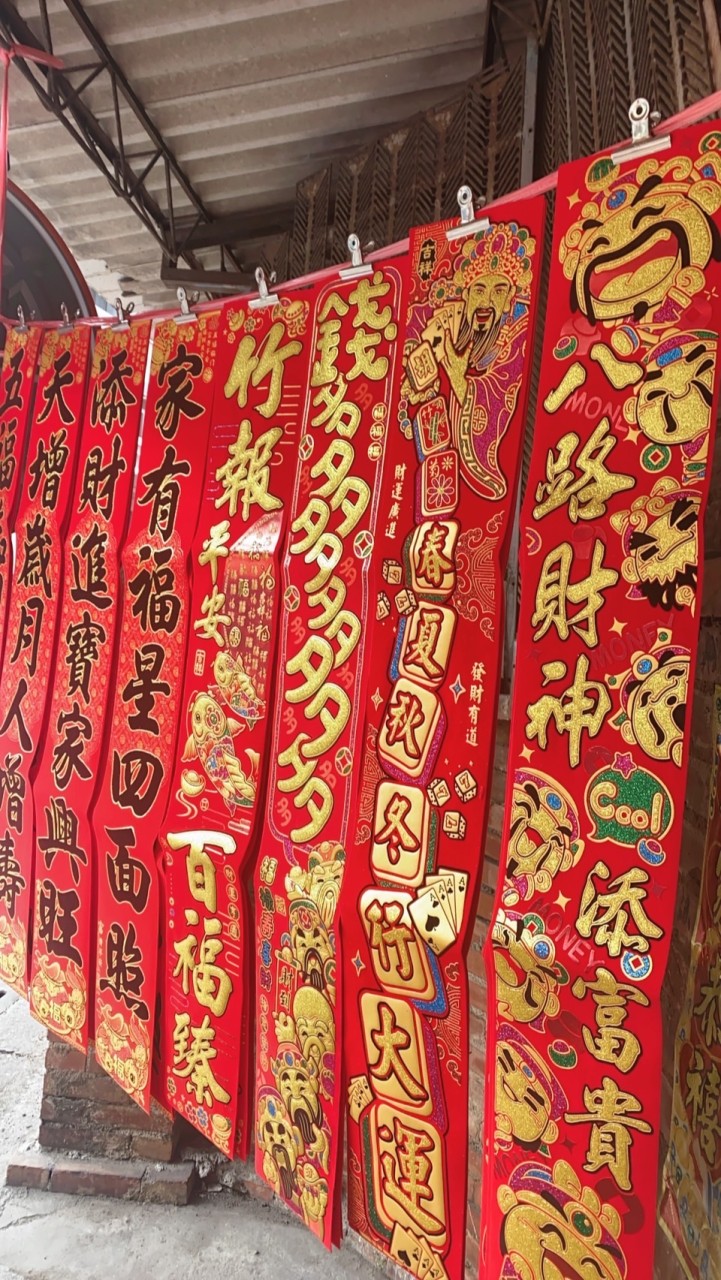 八路財神添富貴
MONEY
Cool
MONEY
吉祥
財運廣進
春夏秋冬行大運
發財有道
錢多多多多多多
竹報平安百福臻
家有福星四面照
添財進寶家興旺
天增歲月人增壽
五福